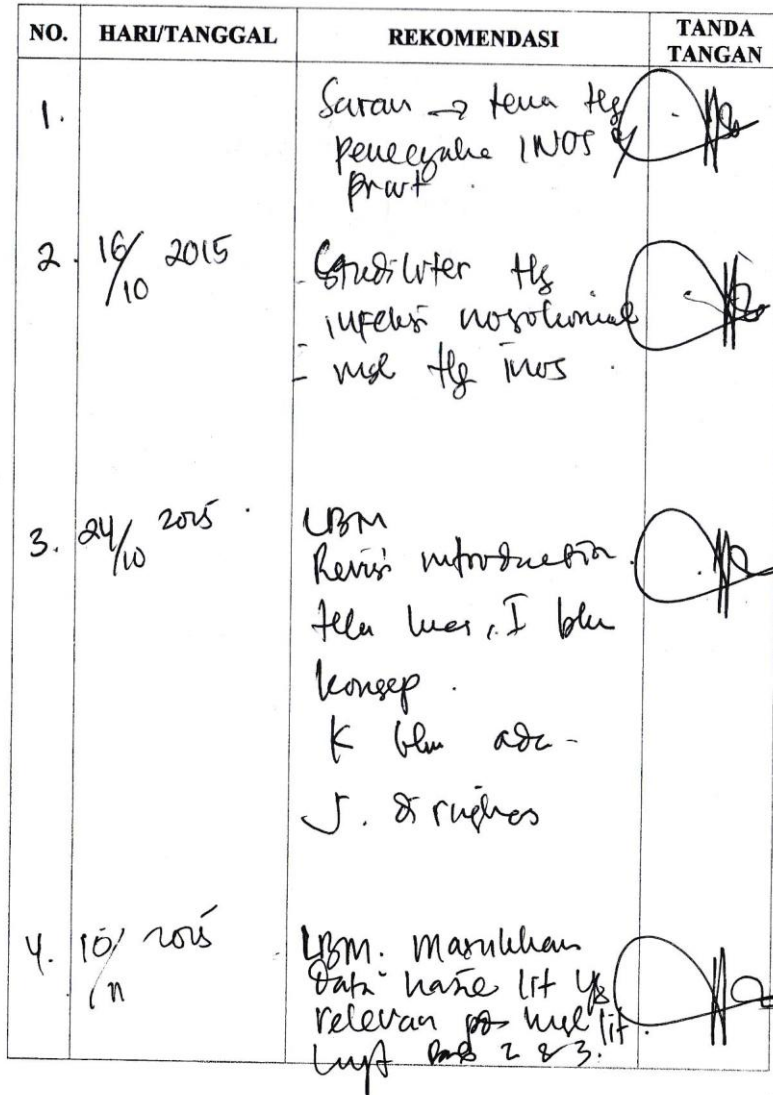 NO. HARI/TANGGAL REKOMENDASI TANDA TANGAN
1. Saran → tema ttg
INOS
2. 16/10 2015 Studi liter ttg
infeksi nosokomial
- ttg inos.
3. 24/10 2015. LBM
Revisi introduction.
I blm
konsep.
K blm ada -
J. diringkas
4. 10/11 2015 LBM. Masukkan
Data hasil lit yg
relevan
2 & 3.